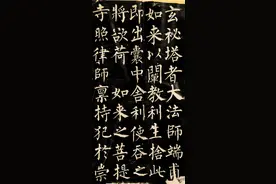 玄祕塔者大法師端甫
如来以闡教利生捨此
即出囊中舍利使吞之
將欲荷 如来之菩提
寺照律師禀持犯於崇